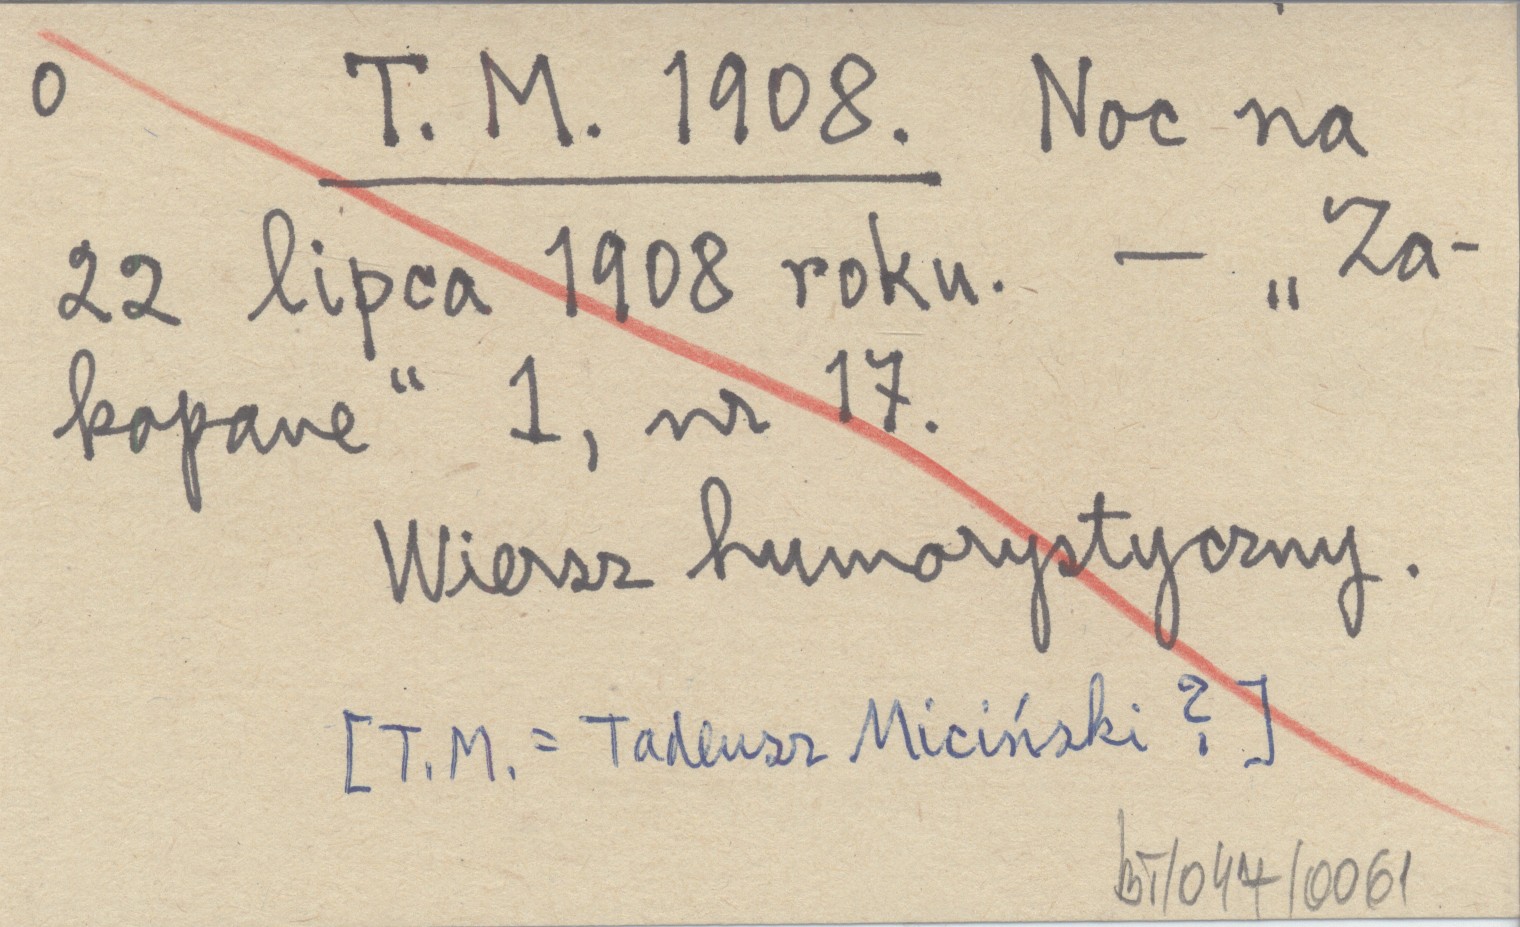 0 T. M. 1908. Noc na
22 lipca 1908 roku. — „Za-
kopane“ 1, nr 17.
Wiersz humorystyczny.
[T.M. = Tadeusz Miciński?]
bT/047/0061